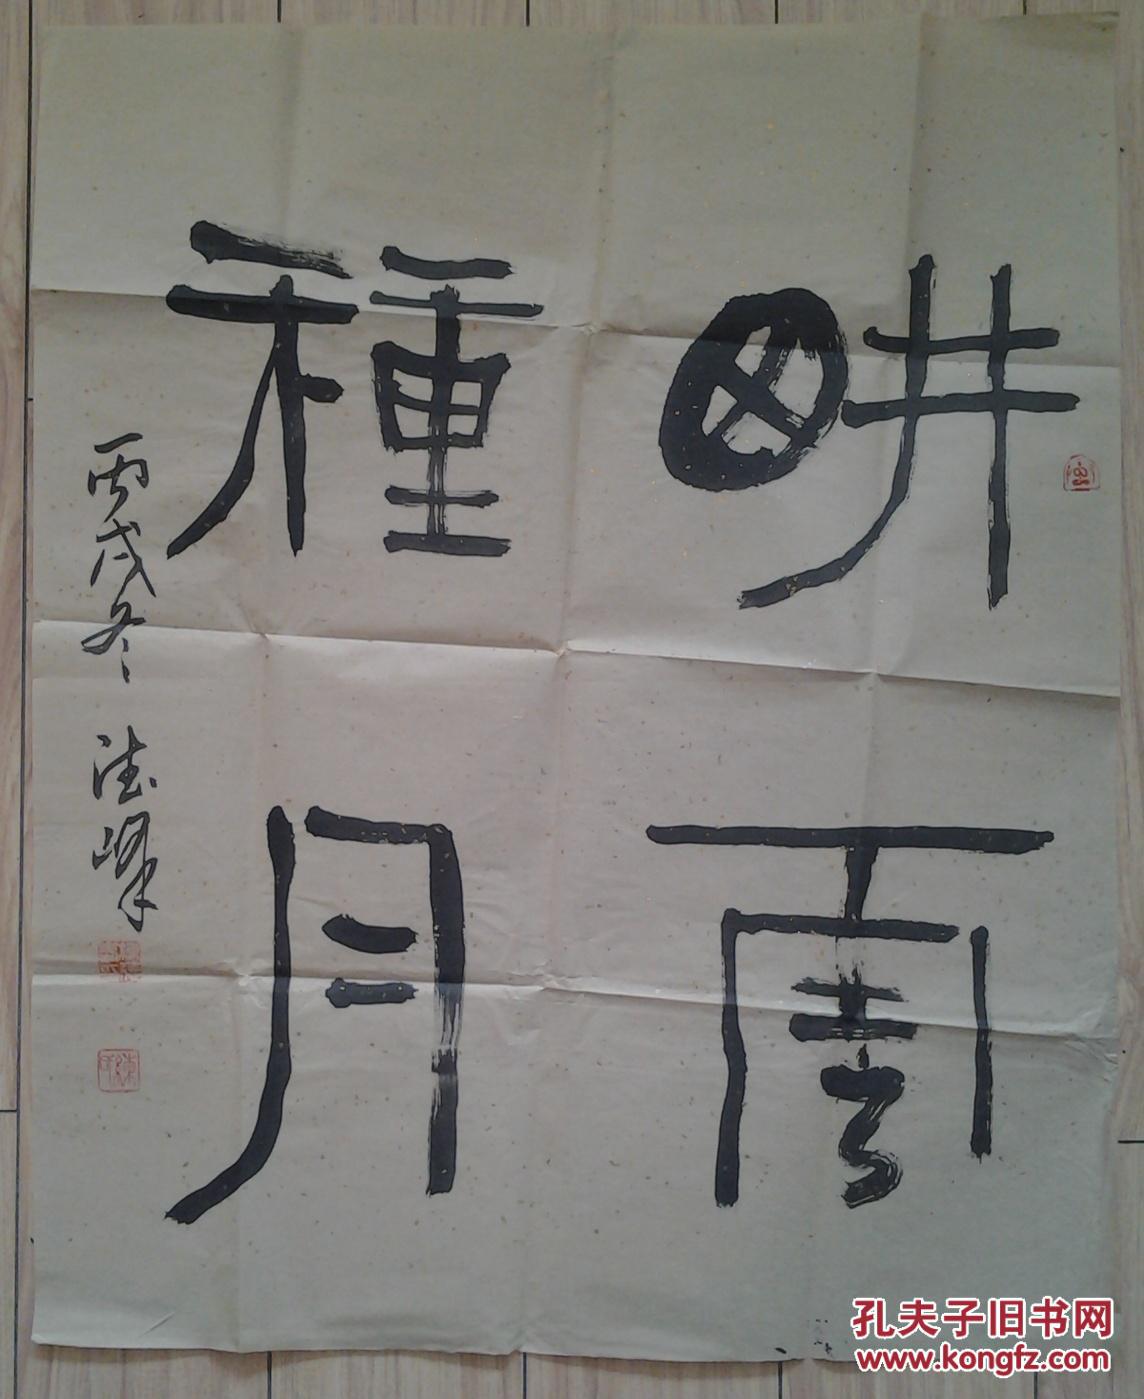 畊雲
種月
丙戌冬 德峰
孔夫子旧书网
www.kongfz.com